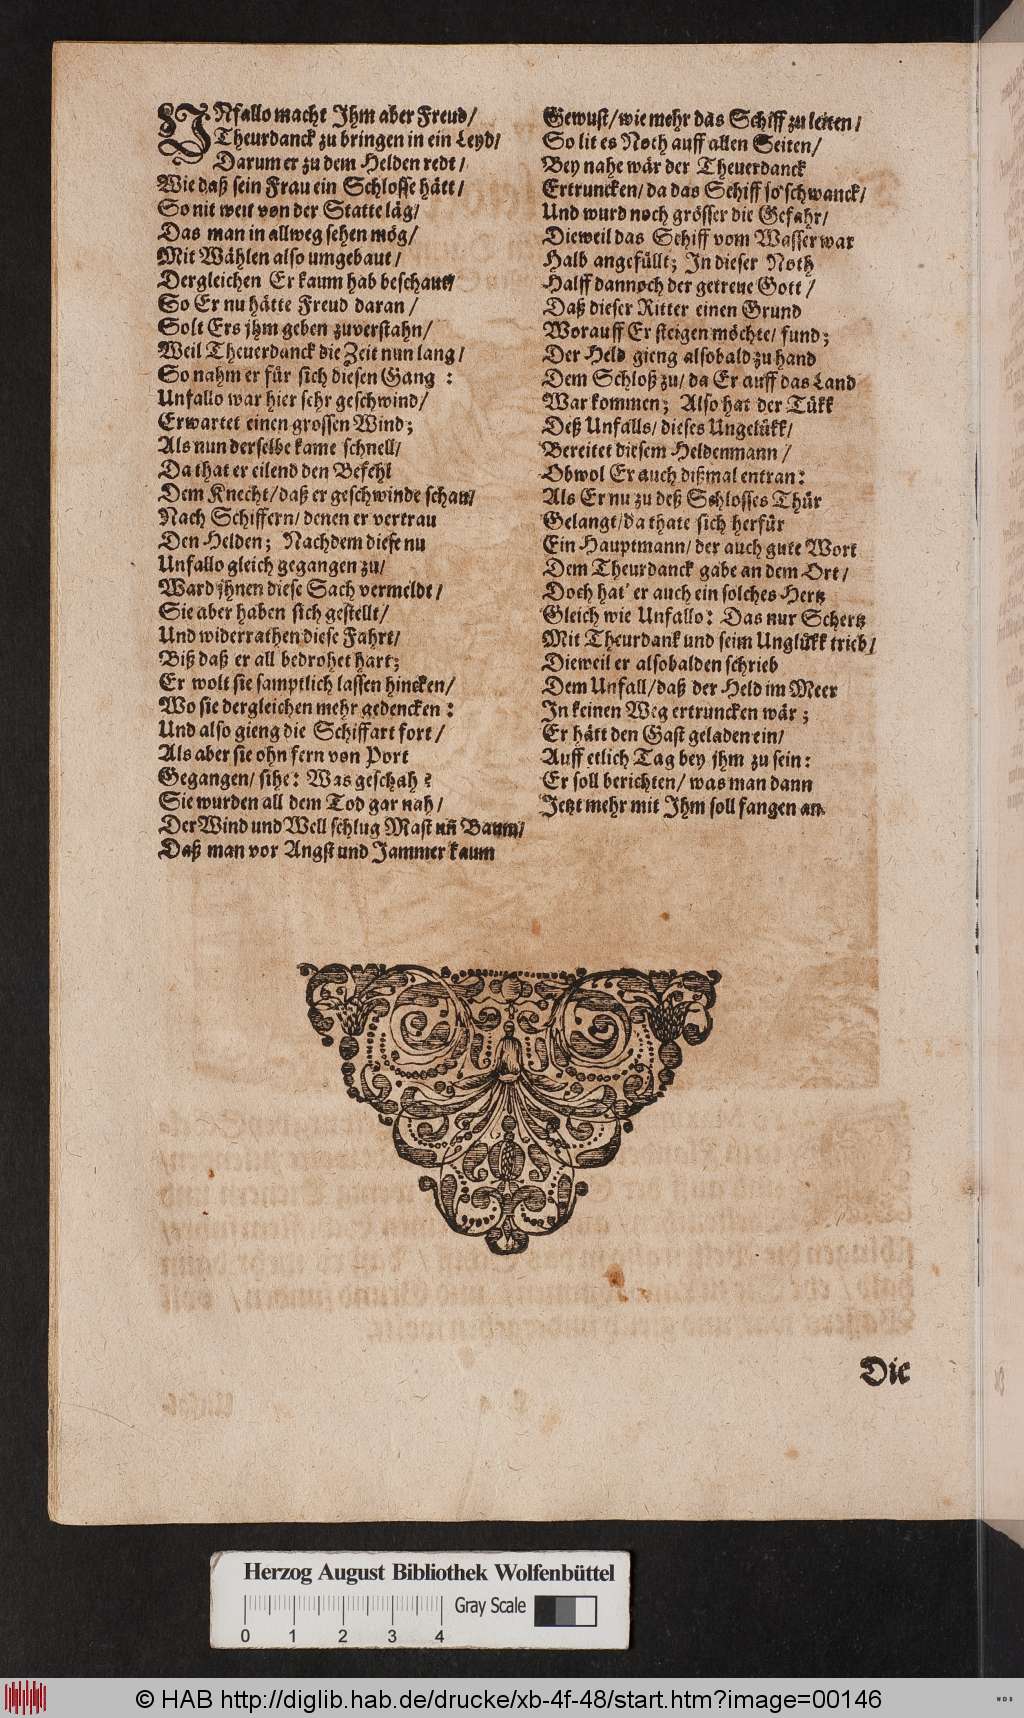 UNfallo macht Ihm aber Freud/
Theurdanck zu bringen in ein Leyd/
Darum er zu dem Helden redt/
Wie daß sein Frau ein Schlosse hätt/
So nit weit von der Statte läg/
Das man in allweg sehen mög/
Mit Wählen also umgebaut/
Dergleichen Er kaum hab beschaut/
So Er nu hätte Freud daran/
Solt Ers jhm geben zuverstahn/
Weil Theuerdanck die Zeit nun lang/
So nahm er für sich diesen Gang:
Unfallo war hier sehr geschwind/
Erwartet einen grossen Wind;
Als nun derselbe kame schnell/
Da that er eilend den Befehl
Dem Knecht/ daß er geschwinde schau/
Nach Schiffern/ denen er vertrau
Den Helden; Nachdem diese nu
Unfallo gleich gegangen zu/
Ward jhnen diese Sach vermeldt/
Sie aber haben sich gestellt/
Und widerrathen diese Fahrt/
Biß daß er all bedrohet hart;
Er wolt sie samptlich lassen hincken/
Wo sie dergleichen mehr gedencken:
Und also gieng die Schiffart fort/
Als aber sie ohnfern von Port
Gegangen/ sihe: Was geschah?
Sie wurden all dem Tod gar nah/
Der Wind und Well schlug Mast uñ Baum/
Daß man vor Angst und Jammer kaum
Gewust/ wie mehr das Schiff zu leiten/
So lit es Noth auff allen Seiten/
Bey nahe wär der Theuerdanck
Ertruncken/ da das Schiff so schwanck/
Und wurd noch grösser die Gefahr/
Dieweil das Schiff vom Wasser war
Halb angefüllt; In dieser Noth
Halff dannoch der getreue Gott/
Daß dieser Ritter einen Grund
Worauff Er steigen möchte/ fund;
Der Held gieng alsobald zu hand
Dem Schloß zu/ da Er auff das Land
War kommen; Also hat der Tükk
Deß Unfalls/ dieses Ungelükk/
Bereitet diesem Heldenmann/
Obwol Er auch dißmal entran:
Als Er nu zu deß Schlosses Thür
Gelangt/ da thate sich herfür
Ein Hauptmann/ der auch gute Wort
Dem Theurdanck gabe an dem Ort/
Doch hat er auch ein solches Hertz
Gleich wie Unfallo: Das nur Schertz
Mit Theurdank und seim Unglükk trieb/
Dieweil er alsobalden schrieb
Dem Unfall/ daß der Held im Meer
In keinen Weg ertruncken wär;
Er hätt den Gast geladen ein/
Auff etlich Tag bey jhm zu sein:
Er soll berichten/ was man dann
Jetzt mehr mit Ihm soll fangen an.
Die
Herzog August Bibliothek Wolfenbüttel
Gray Scale
0 1 2 3 4
© HAB http://diglib.hab.de/drucke/xb-4f-48/start.htm?image=00146